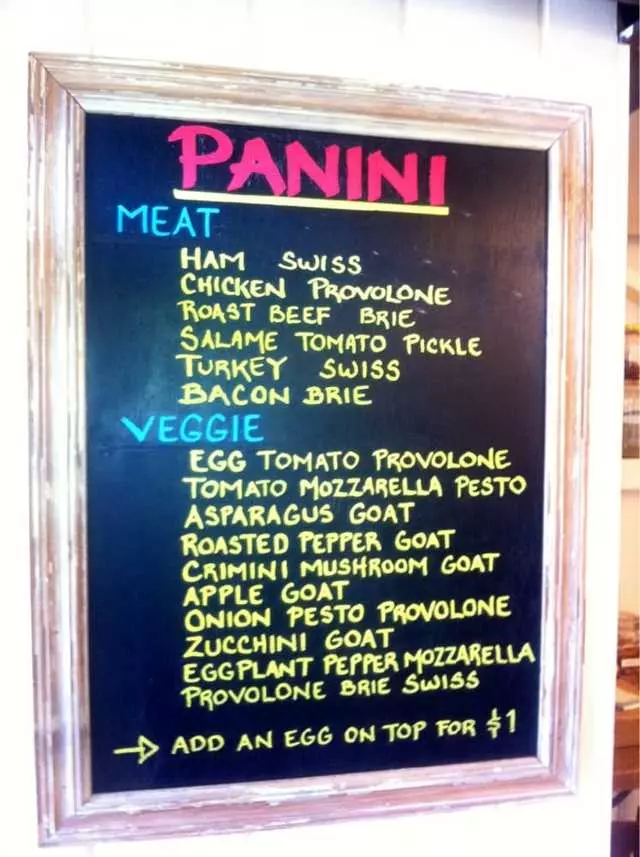 PANINI
MEAT
HAM SWISS
CHICKEN PROVOLONE
ROAST BEEF BRIE
SALAME TOMATO PICKLE
TURKEY SWISS
BACON BRIE
VEGGIE
EGG TOMATO PROVOLONE
TOMATO MOZZARELLA PESTO
ASPARAGUS GOAT
ROASTED PEPPER GOAT
CRIMINI MUSHROOM GOAT
APPLE GOAT
ONION PESTO PROVOLONE
ZUCCHINI GOAT
EGGPLANT PEPPER MOZZARELLA
PROVOLONE BRIE SWISS
→ ADD AN EGG ON TOP FOR $1